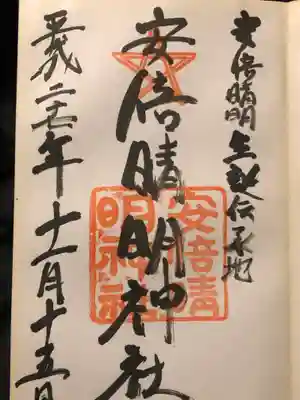 安倍晴明生誕伝承地
安倍晴明神社
安倍晴明神社
平成二十七年十一月十五日